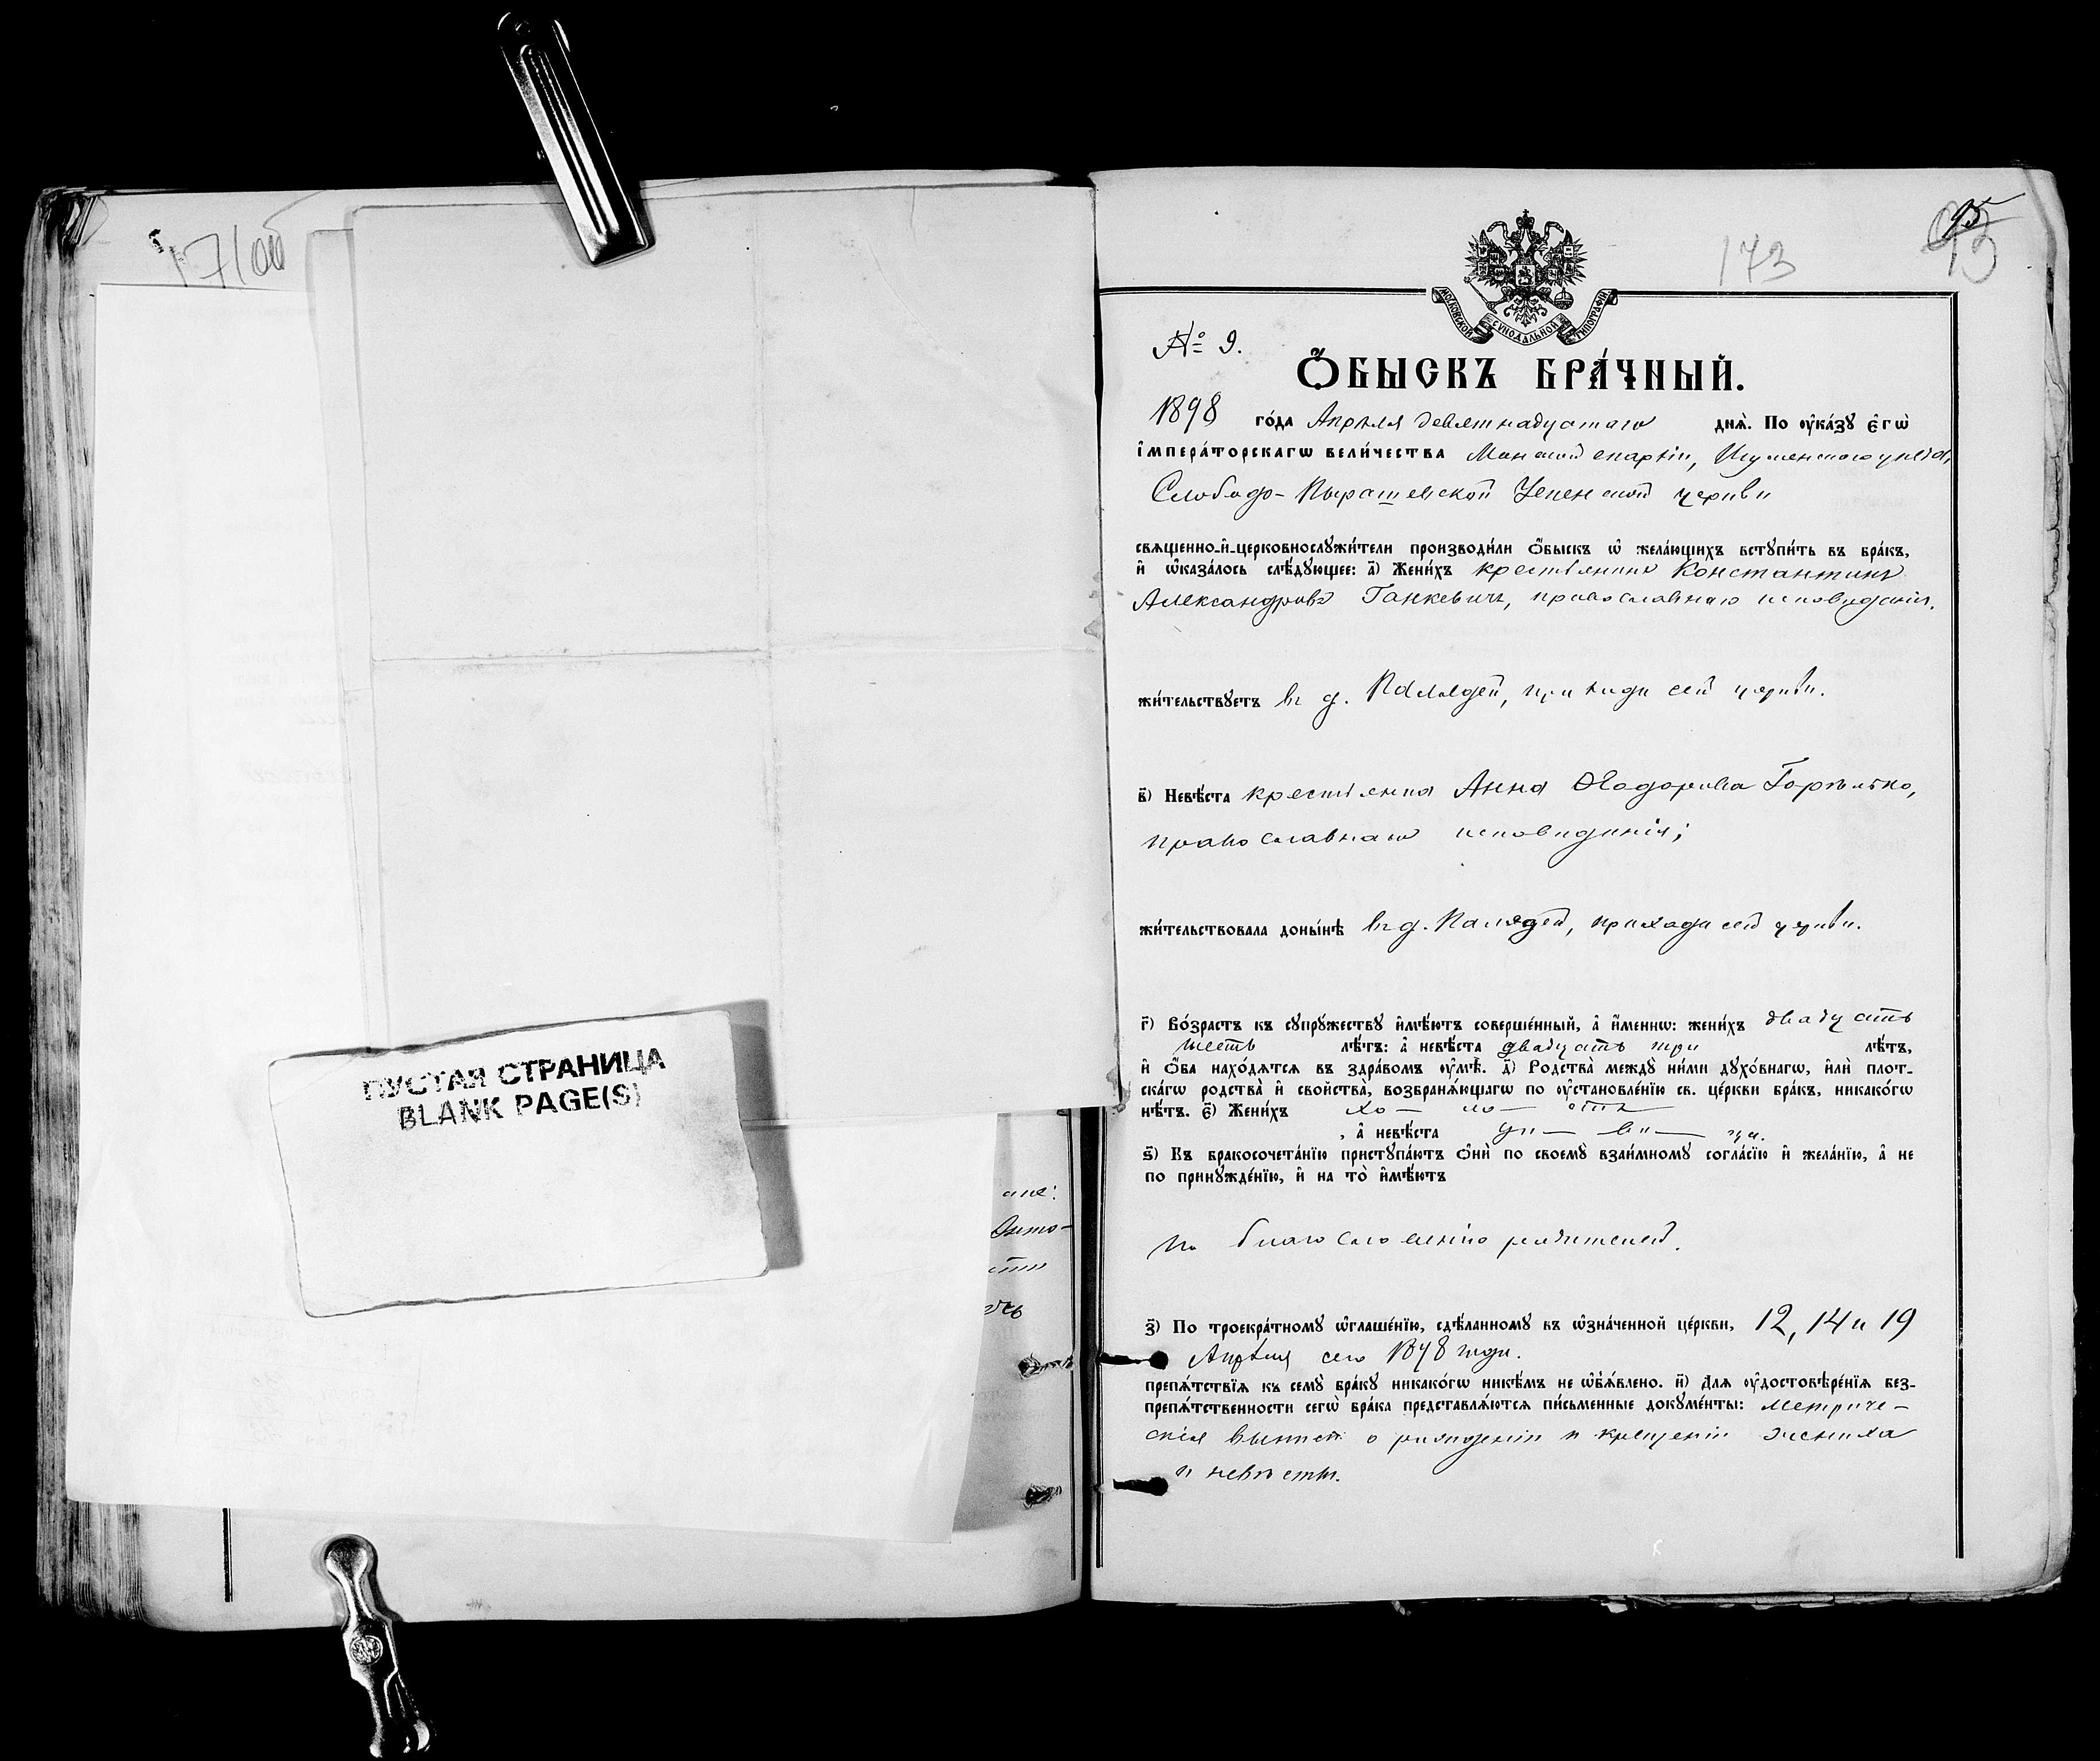 17100
ПУСТАЯ СТРАНИЦА
BLANK PAGE(S)
173
95
93
МОСКОВСКОЙ СѴНОДАЛЬНОЙ ТИПОГРАФІИ
№ 9.
Ѻ҆БЫСКЪ БРА́ЧНЫЙ.
1898 го́да Апрѣля девятнадцатаго днѧ̀. По ᲂу҆ка́зꙋ є҆гѡ̀
і҆мпера́торскагѡ вели́чества Минской епархіи, Игуменскаго уѣзда,
Слободо-Пырашевской Успенской церкви
свѧще́нно-и҆-церковнослꙋжи́тели производи́ли ѻ҆́быскъ ѡ҆ жела́ющихъ встꙋпи́ть въ бра́къ,
и҆ ѡ҆каза́лось слѣ́дꙋющее: а҃) Жени́хъ крестьянинъ Константинъ
Александровъ Ганкевичъ, православнаго исповѣданія.
жи́тельствꙋетъ въ д. приходѣ сей церкви.
в҃) Невѣ́ста крестьянка Анна Ѳеодорова
православнаго исповѣданія;
жи́тельствовала доны́нѣ въ д. приходѣ сей церкви.
г҃) Во́зрастъ къ сꙋпрꙋ́жествꙋ и҆мѣ́ютъ соверше́нный, а҆ и҆́меннѡ: жени́хъ двадцать
шесть лѣ́тъ: а҆ невѣ́ста двадцать три лѣ́тъ,
и҆ ѻ҆́ба нахо́дѧтсѧ въ здра́вомъ ᲂу҆мѣ̀. д҃) Родства̀ междꙋ̀ ни́ми дꙋхо́внагѡ, и҆лѝ плот-
ска́гѡ родства̀ и҆ свойства̀, возбранѧ́ющагѡ по ᲂу҆становле́нїю св. це́ркви бра́къ, никако́гѡ
нѣ́тъ. є҃) Жени́хъ хо— ло— стъ
, а҆ невѣ́ста дѣ— ви— ца.
ѕ҃) Къ бракосочета́нїю пристꙋпа́ютъ ѻ҆нѝ по своемꙋ̀ взаи́мномꙋ согла́сїю и҆ жела́нїю, а҆ не
по принꙋжде́нїю, и҆ на то̀ и҆мѣ́ютъ
по благословенію родителей.
з҃) По троекра́тномꙋ ѡ҆глаше́нїю, сдѣ́ланномꙋ въ ѡ҆зна́ченной це́ркви, 12, 14 и 19
Апрѣля сего 1898 года.
препѧ́тствїѧ къ семꙋ̀ бра́кꙋ никако́гѡ никѣ́мъ не ѡ҆б̾ѧ́влено. и҃) Длѧ ᲂу҆достовѣре́нїѧ без-
препѧ́тственности сегѡ̀ бра́ка представлѧ́ютсѧ пи́сьменные докꙋме́нты: метриче-
скія выписи о рожденіи и крещеніи жениха
и невѣсты.